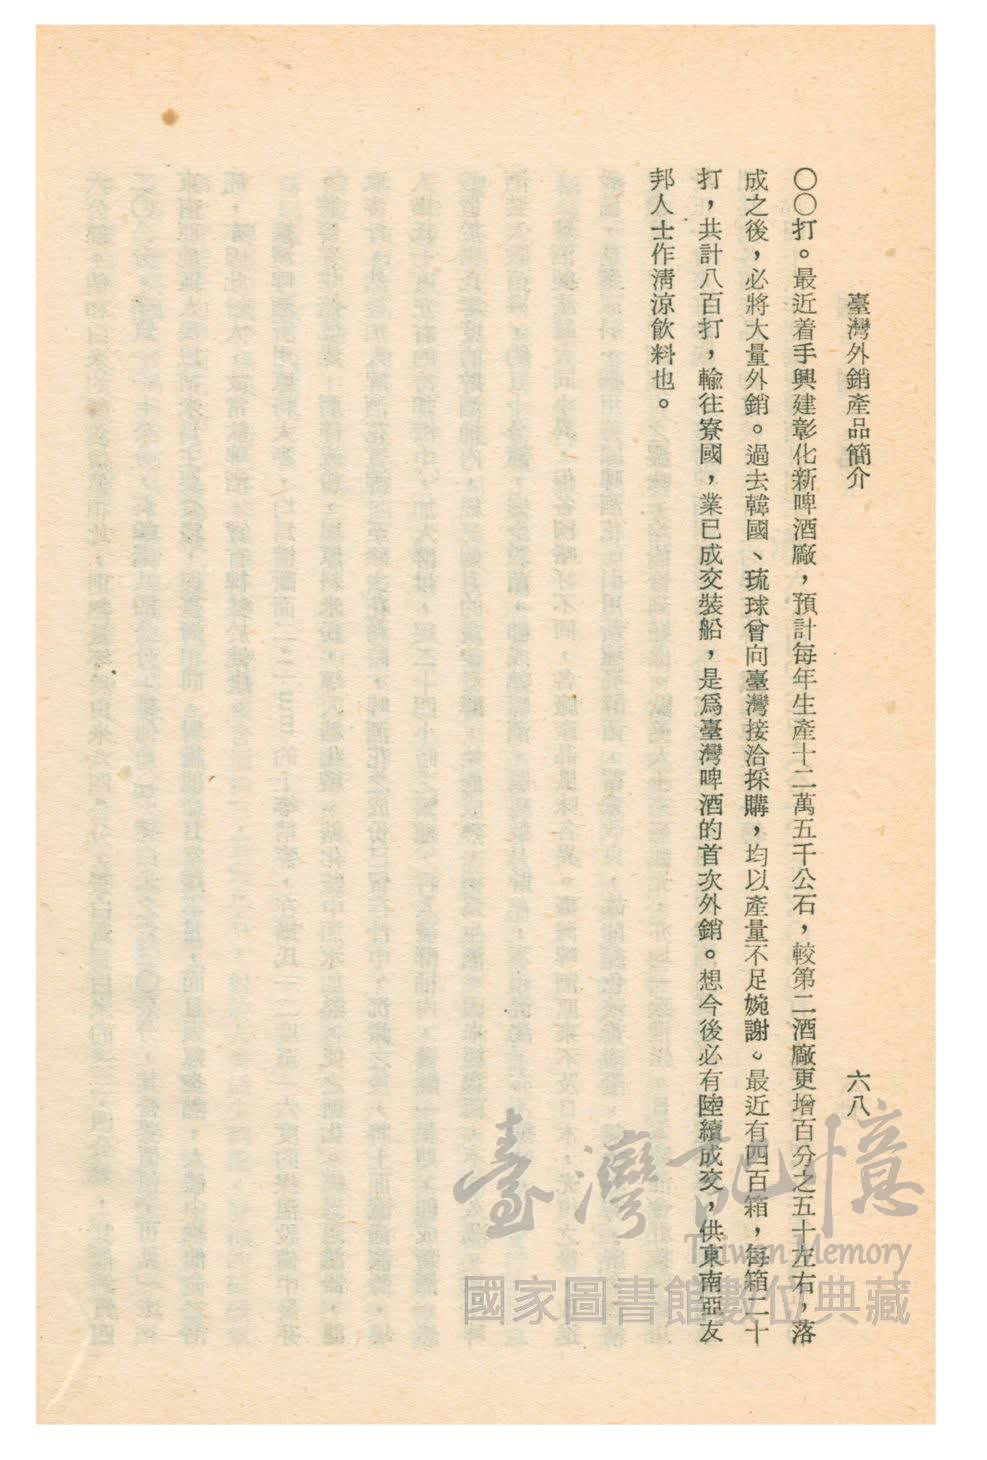 臺灣外銷產品簡介
六八
〇〇打。最近着手興建彰化新啤酒廠，預計每年生產十二萬五千公石，較第二酒廠更增百分之五十左右，落
成之後，必將大量外銷。過去韓國、琉球曾向臺灣接洽採購，均以產量不足婉謝。最近有四百箱，每箱二十
打，共計八百打，輸往寮國，業已成交裝船，是爲臺灣啤酒的首次外銷。想今後必有陸續成交，供東南亞友
邦人士作淸涼飲料也。
臺灣記憶
Taiwan Memory
國家圖書館數位典藏